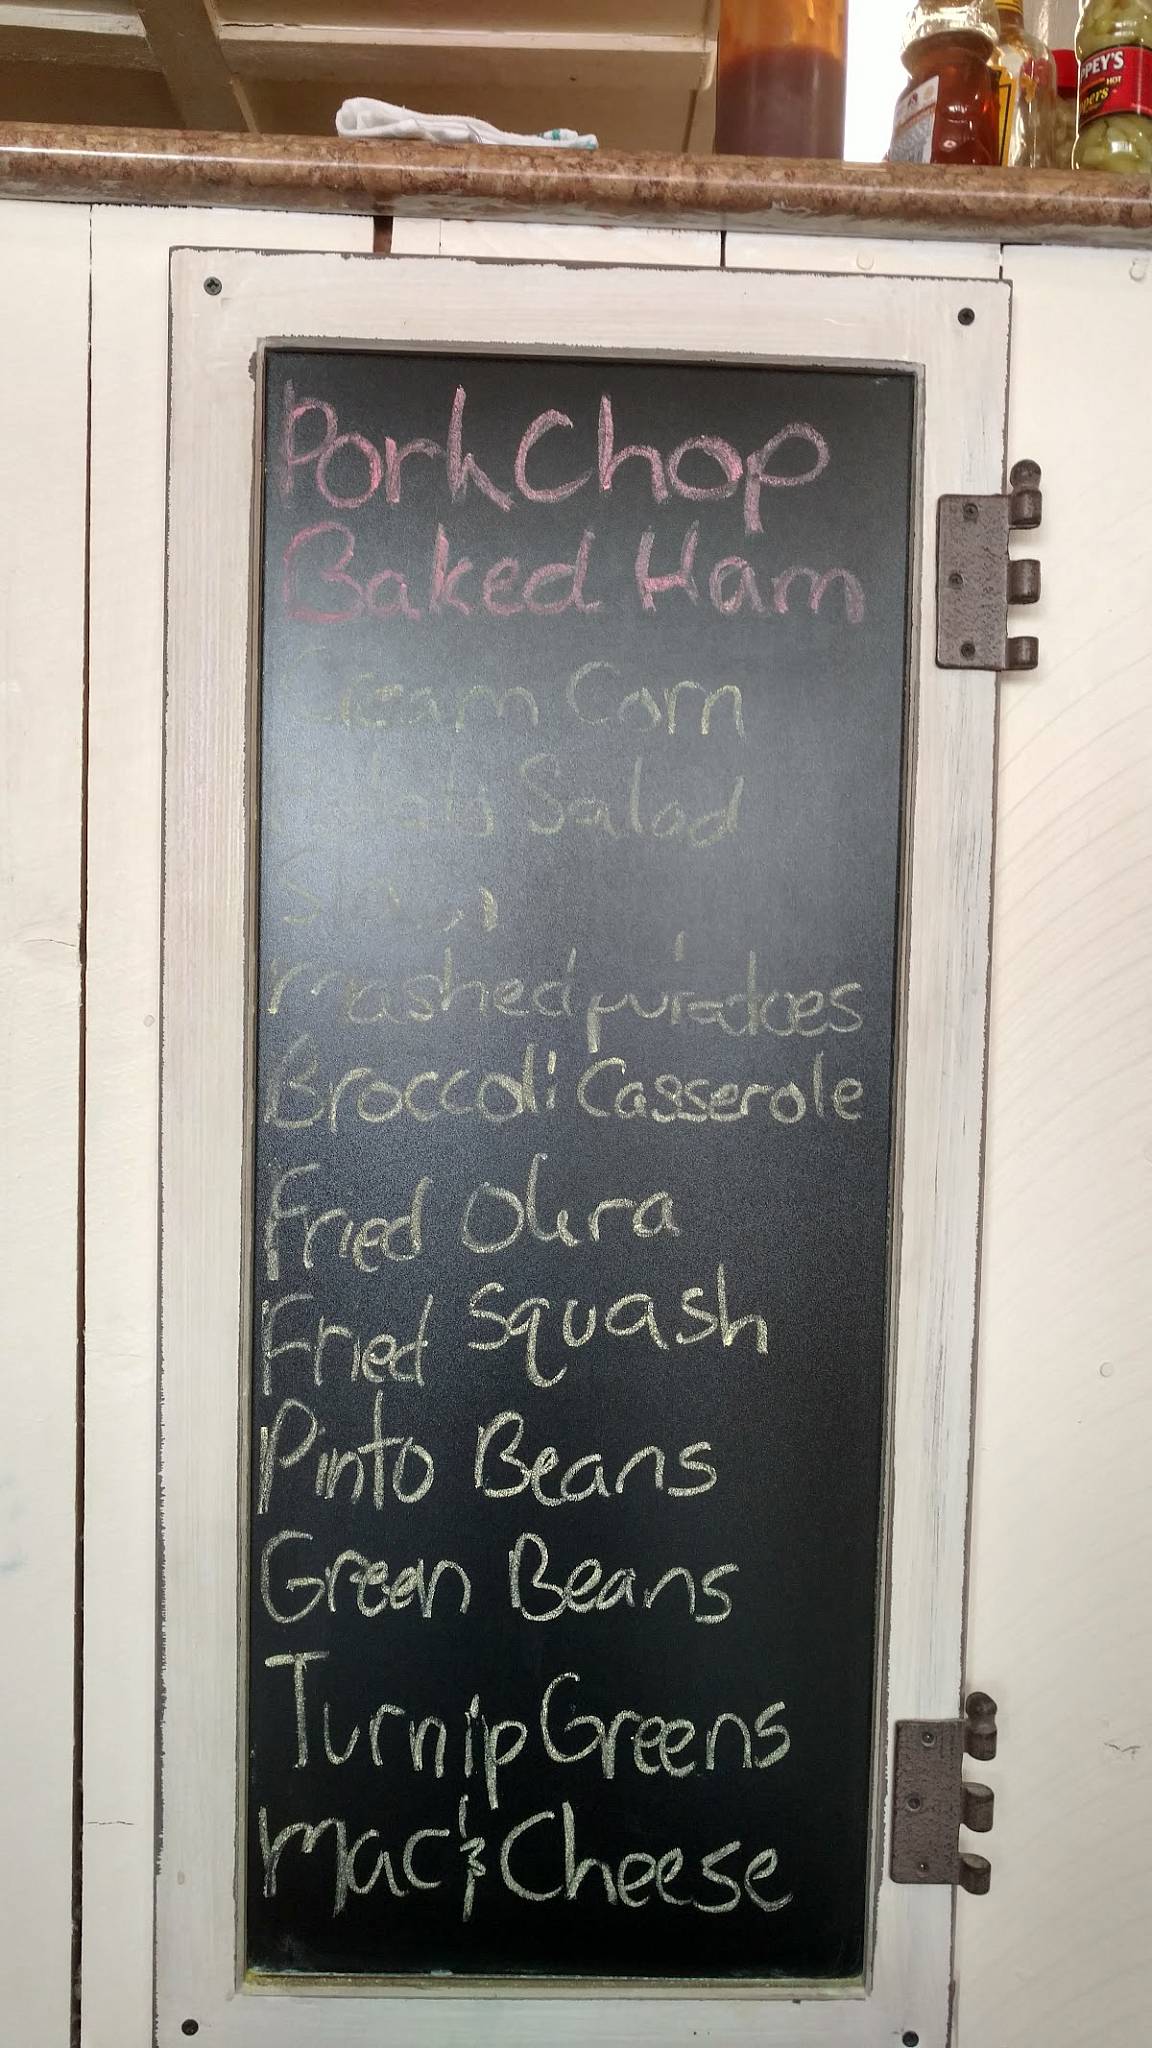 PPEY'S
HOT
Pork Chop
Baked Ham
Cream Corn
Potato Salad
Mashed potatoes
Broccoli Casserole
Fried Okra
Fried Squash
Pinto Beans
Green Beans
Turnip Greens
Mac & Cheese